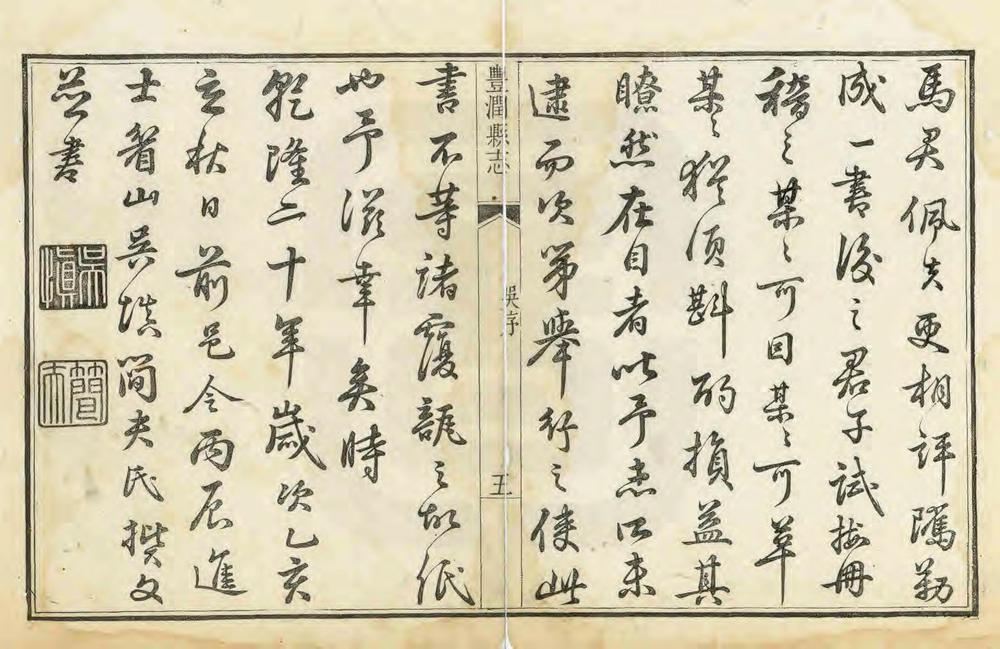 馬君佩夫更相評隲勒
成一書後之君子試按冊
稽之某〻可因某〻可革
某〻猶須斟酌損益其
瞭然在目者此予志所未
逮而次第舉行之使此
豐潤縣志
吳序
五
書不等諸覆瓿之故紙
也予滋幸矣時
乾隆二十年歲次乙亥
立秋日前邑令丙辰進
士眉山吳慎簡夫氏撰文
並書
吳慎
簡夫